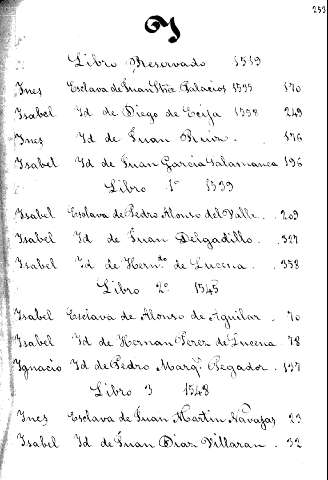 253
I
Libro Reservado 1539
Ines Esclava de Juan Palacios 1535 170
Isabel Id de Diego de Ecija 1538 249
Ines Id de Juan 176
Isabel Id de Juan Garcia Salamanca 196
Libro 1º 1539
Isabel Esclava de Pedro Alonso del Valle. . 209
Isabel Id de Juan Delgadillo. . 327
Isabel Id de Hern.do de Lucena. . 338
Libro 2º 1545
Isabel Esclava de Alonso de Aguilar . 70
Isabel Id de Hernan Perez de Lucena 78
Ignacio Id de Pedro Marq.s Pegador . 137
Libro 3 1548
Ines Esclava de Juan Martin Navajas 23
Isabel Id de Juan Diaz Villaran . 32